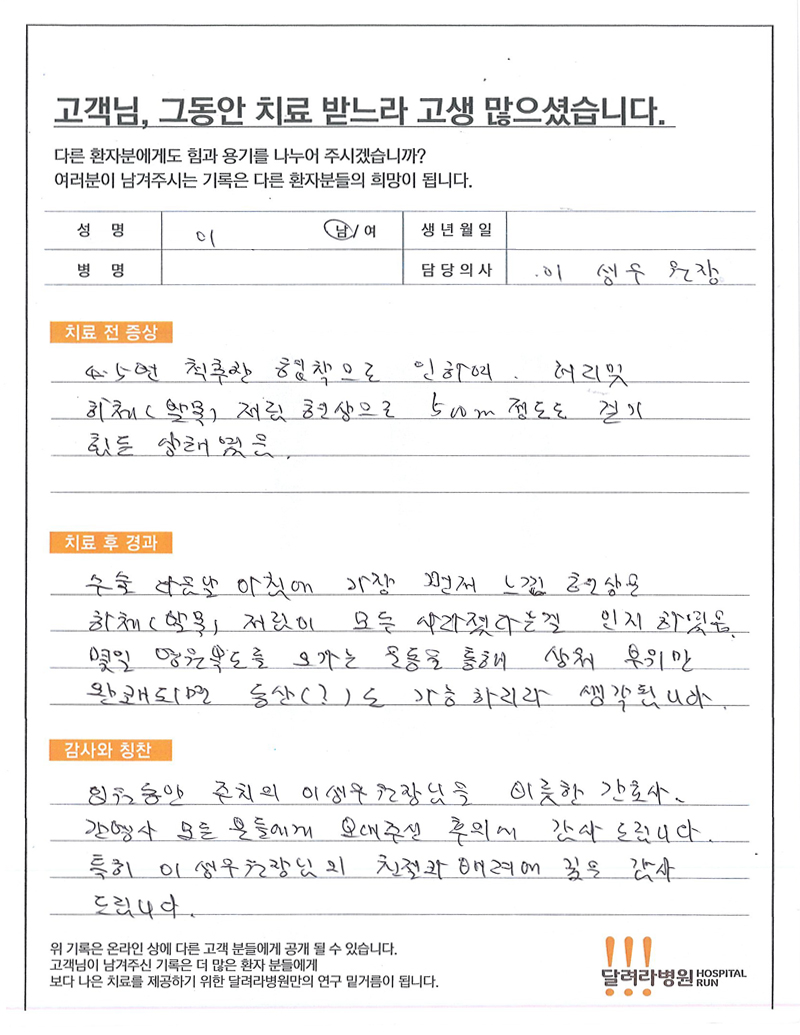 고객님, 그동안 치료 받느라 고생 많으셨습니다.
다른 환자분에게도 힘과 용기를 나누어 주시겠습니까?
여러분이 남겨주시는 기록은 다른 환자분들의 희망이 됩니다.
성 명 이 남/여 생년월일
병 명 담당의사 이 생우 원장
치료 전 증상
4.5번 척추관 협착으로 인하여. 허리및
하체(발목) 저림 현상으로 500m 정도도 걷기
힘든 상태였음.
치료 후 경과
수술 다음날 아침에 가장 먼저 느낌 현상은
하체(발목) 저림이 모두 사라졌다는걸 인지 하였음.
몇일 병원복도를 오가는 운동을 통해 상처 부위만
완쾌되면 등산(?)도 가능하리라 생각됩니다.
감사와 칭찬
입원동안 주치의 이생우원장님을 비롯한 간호사.
간병사 모든 분들에게 보내주신 후의에 감사 드립니다.
특히 이생우원장님의 친절과 배려에 깊은 감사
드립니다.
위 기록은 온라인 상에 다른 고객 분들에게 공개 될 수 있습니다.
고객님이 남겨주신 기록은 더 많은 환자 분들에게
보다 나은 치료를 제공하기 위한 달려라병원만의 연구 밑거름이 됩니다.
!!!
달려라병원 HOSPITAL RUN